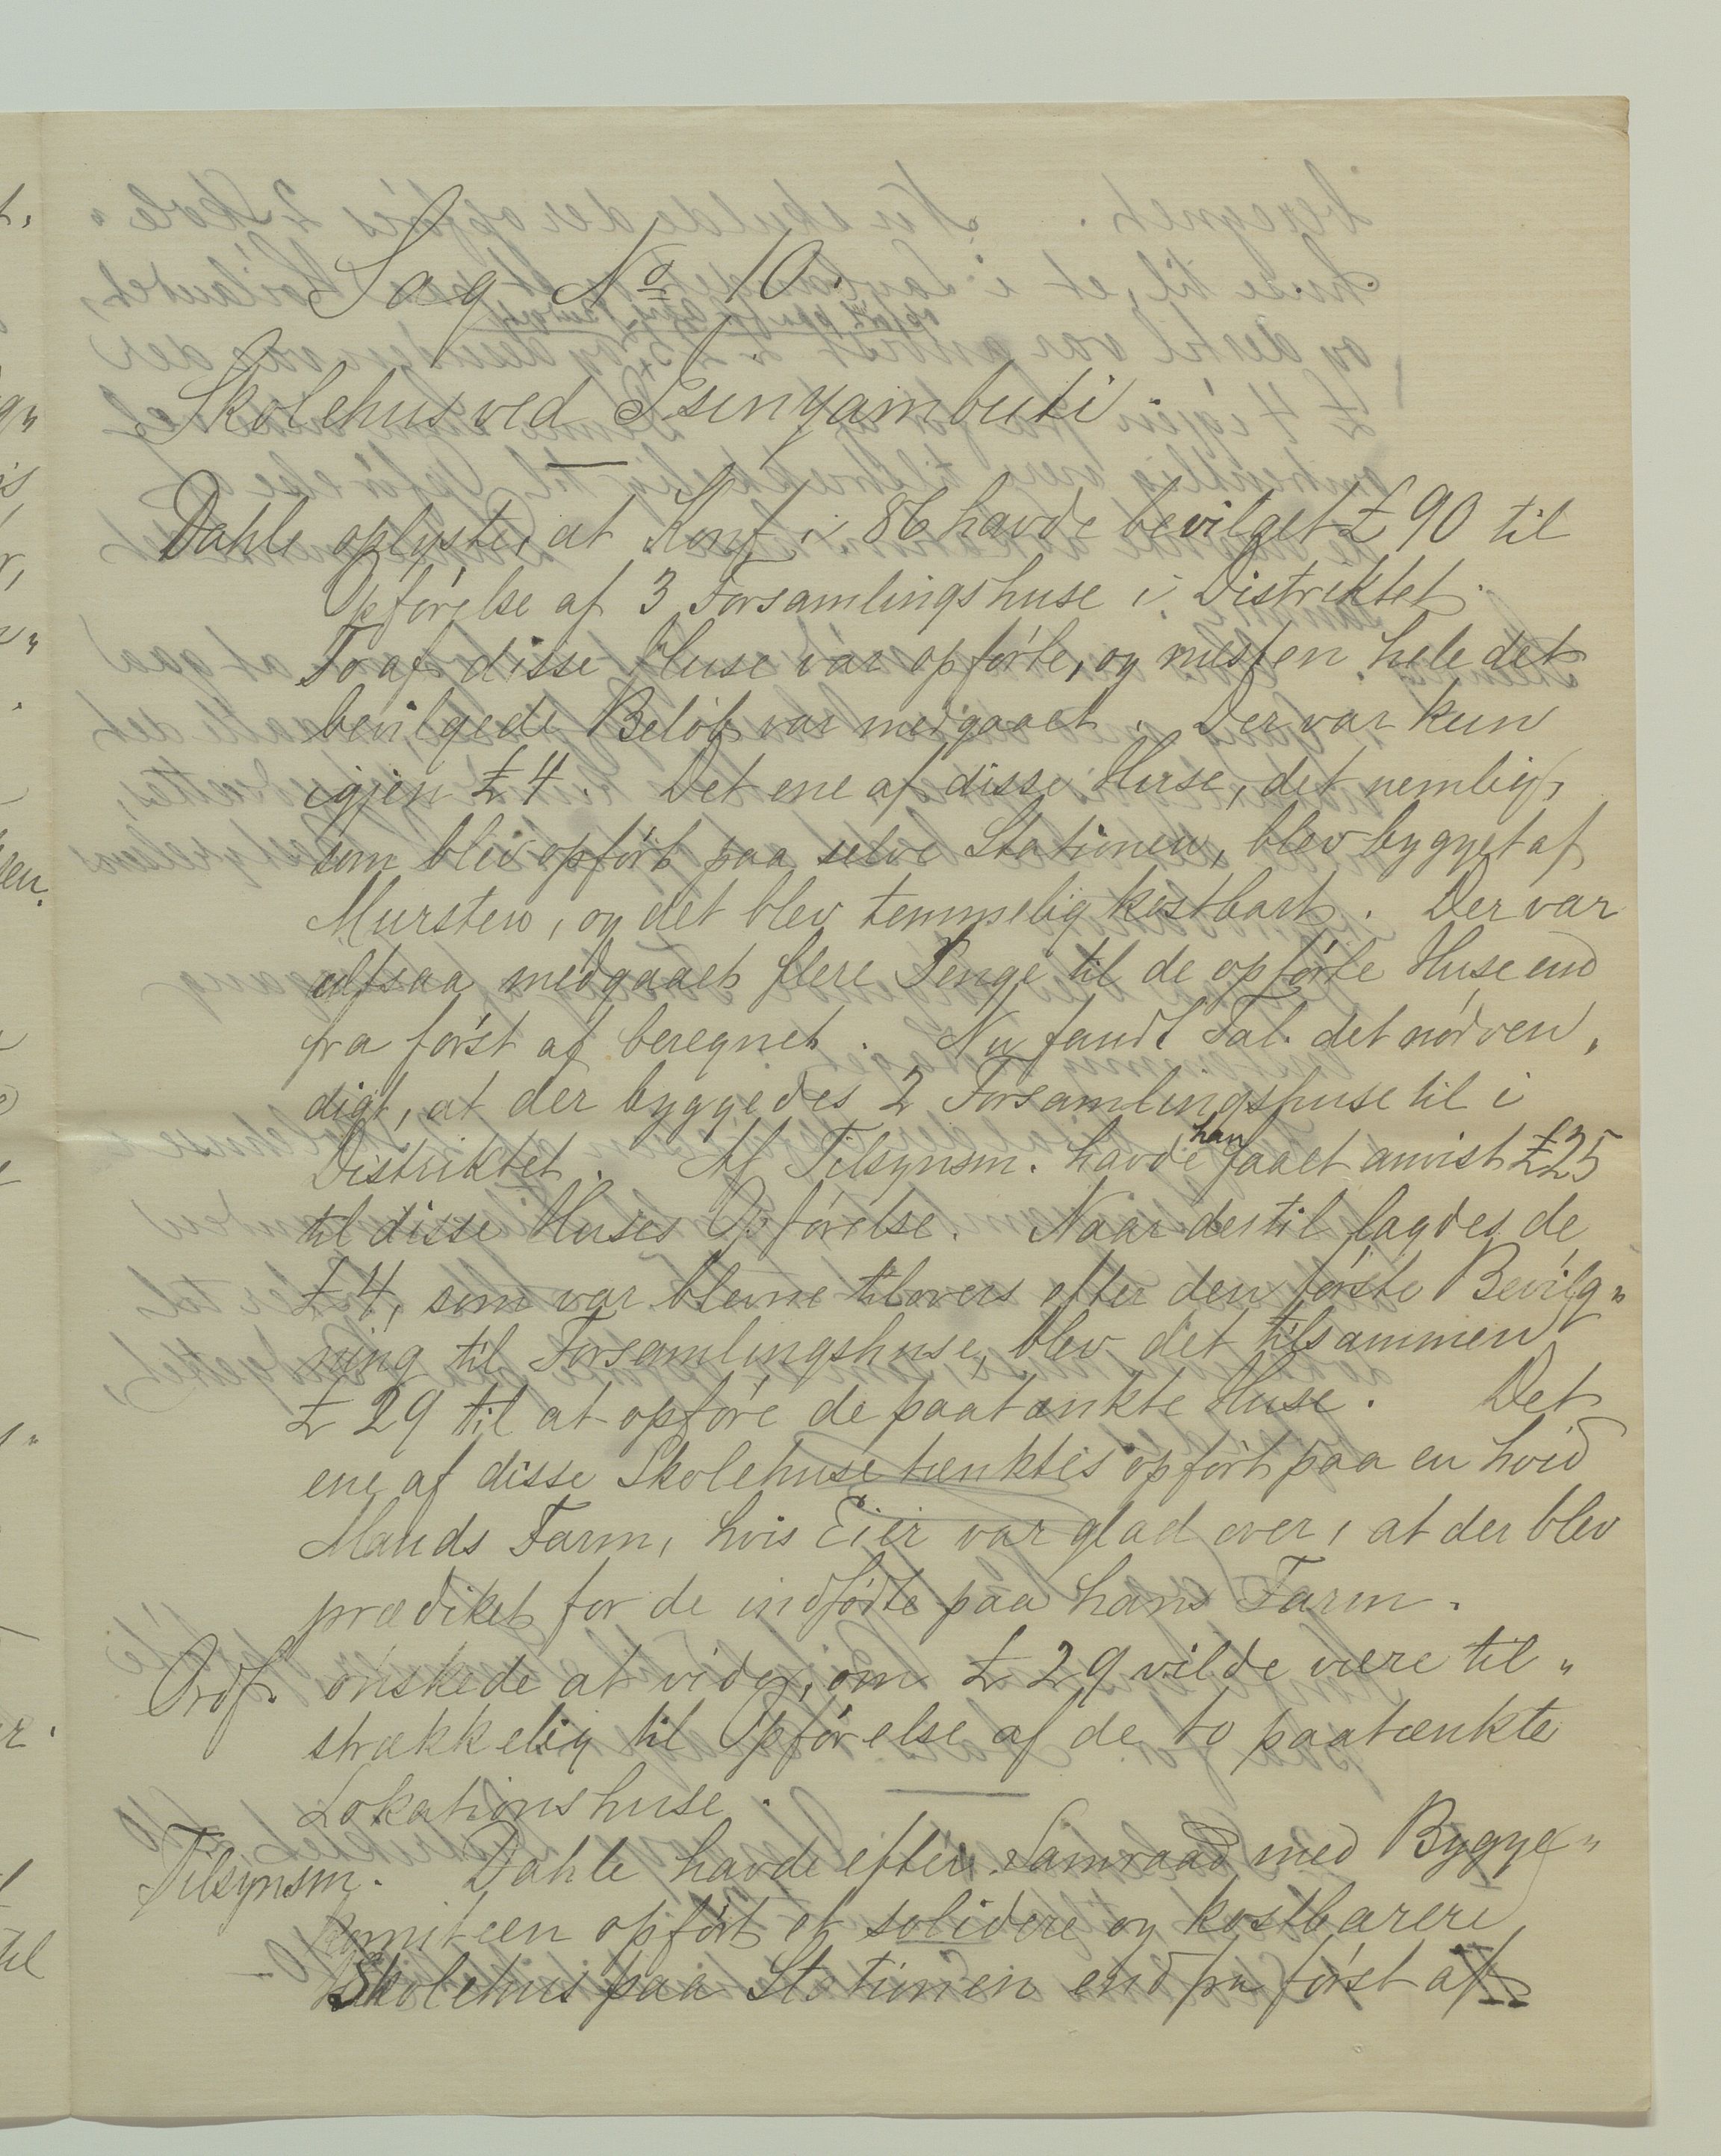 Sag No 10.
Skolehus ved Isinyambuti.
Dahle oplyste, at Konf. i 86 havde bevilget £ 90 til
Opførelse af 3 Forsamlingshuse i Distriktet.
To af disse Huse var opførte, og næsten hele det
bevilgede Beløb var medgaaet. Der var kun
igjen £ 4. Det ene af disse Huse, det nemlig,
som blev opført paa selve Stationen, blev bygget af
Mursten, og det blev temmelig kostbart. Der var
altsaa medgaaet flere Penge til de opførte Huse end
fra først af beregnet. Nu fandt Tal. det nødven„
digt, at der byggedes 2 Forsamlingshuse til i
Distriktet. Af Tilsynsm. havde han faaet anvist £25
til disse Huses Opførelse. Naar dertil lagdes de
£ 4, som var blevne tilovers efter den første Bevilg„
ning til Forsamlingshuse, blev det tilsammen
£ 29 til at opføre de paatænkte Huse. Det
ene af disse Skolehuse tænktes opført paa en hvid
Mands Farm, hvis Eier var glad over, at der blev
prædiket for de indfødte paa hans Farm.
Ordf. ønskede at vide, om £ 29 vilde være til„
strækkelig til Opførelse af de to paatænkte
Lokationshuse.
Tilsynsm. Dahle havde efter Samraad med Bygge„
komiteen opført et solidere og kostbarere
Skolehus paa Stationen end fra først af